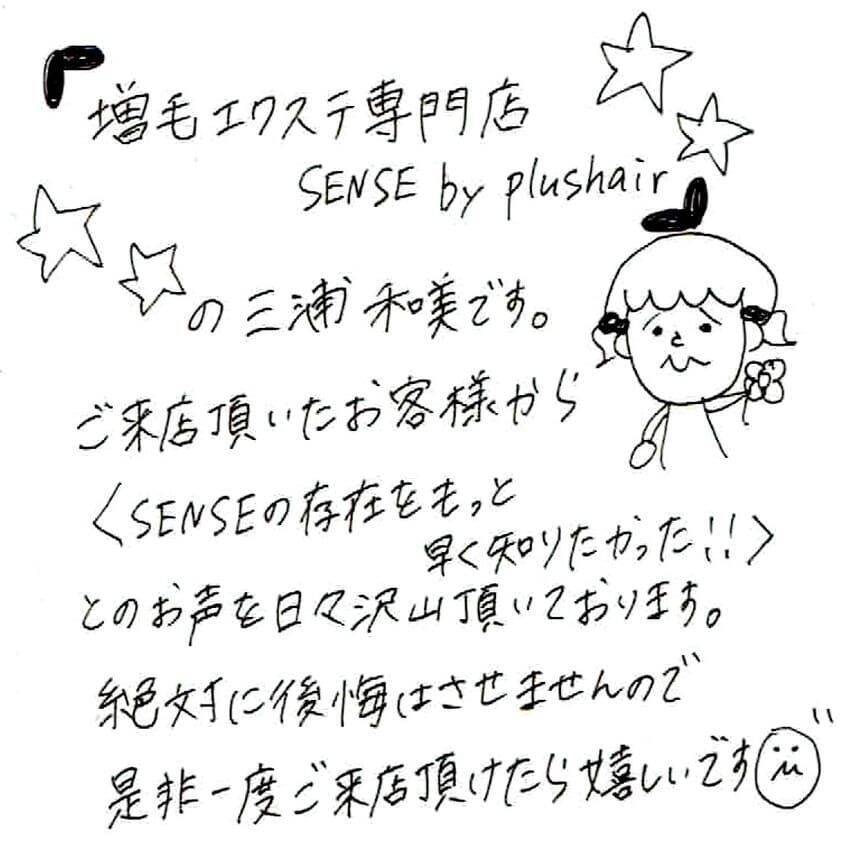 『増毛エクステ専門店
SENSE by plushair』
の三浦和美です。
ご来店頂いたお客様から
〈SENSEの存在をもっと
早く知りたかった!!〉
とのお声を日々沢山頂いております。
絶対に後悔はさせませんので
是非一度ご来店頂けたら嬉しいです